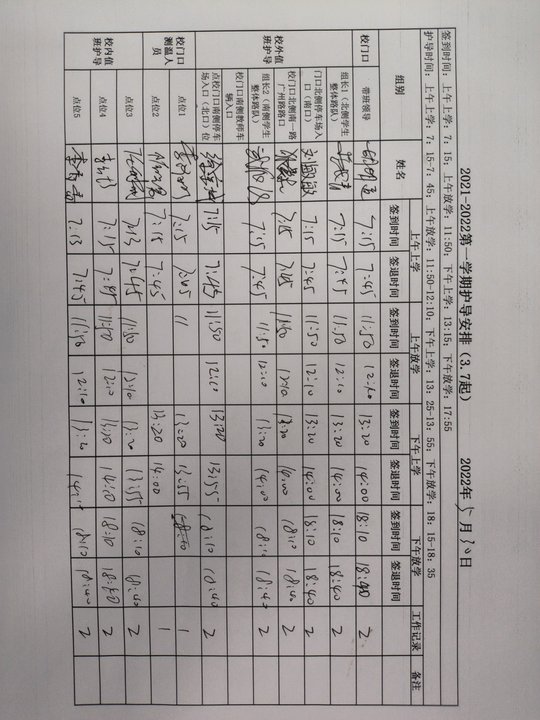 2021-2022第一学期护导安排（3.7起） 2022年5月30日
签到时间：上午上学：7：15；上午放学：11:50；下午上学：13:15；下午放学：17:55
护导时间：上午上学：7：15-7：45；上午放学：11:50-12:10；下午上学：13：25-13：55；下午放学：18：15-18：35
组别 姓名 上午上学 上午放学 下午上学 下午放学 工作记录 备注
签到时间 签退时间 签到时间 签退时间 签到时间 签退时间 签到时间 签退时间
校门口 带班领导 7:15 7:45 11:50 12:10 13:20 14:00 18:10 18:40 2
校外值班护导 组长1（北侧学生整体路队） 7:15 7:45 11:50 12:10 13:20 14:00 18:10 18:40 2
门口北侧停车场入口（南口） 刘敏敏 7:15 7:45 11:50 12:10 13:20 14:00 18:10 18:40 2
校门口北侧南一路广州路路口 7:15 7:45 11:50 12:10 13:20 14:00 18:10 18:40 2
组长2（南侧学生整体路队） 7:15 7:45 11:50 12:10 13:20 14:00 18:10 18:40 2
校门口南侧教师车辆入口
点校门口南侧停车场入口（北口）位 7:15 7:45 11:50 12:10 13:20 13:55 18:10 18:40 2
校门口测温人员 点位1 7:15 7:45 11 13:20 13:55 1
点位2 7:15 7:45 13:20 14:00 1
校内值班护导 点位3 7:13 7:45 11:50 12:10 13:20 13:55 18:10 18:40 2
点位4 7:15 7:45 11:50 12:10 13:20 14:10 18:10 18:40 2
点位5 7:13 7:45 11:50 12:10 18:10 18:40 2